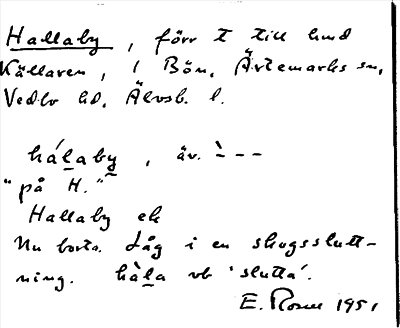 Hallaby, förr t till lund
Källaren, i Bön, Ärtemarks sn,
Vedbo hd, Älvsb. l.
hálaby, äv. `---
"på H."
Hallaby ek
Nu borta. Låg i en skogsslutt-
ning. hàla vb 'slutta'.
E. Rosell 1951